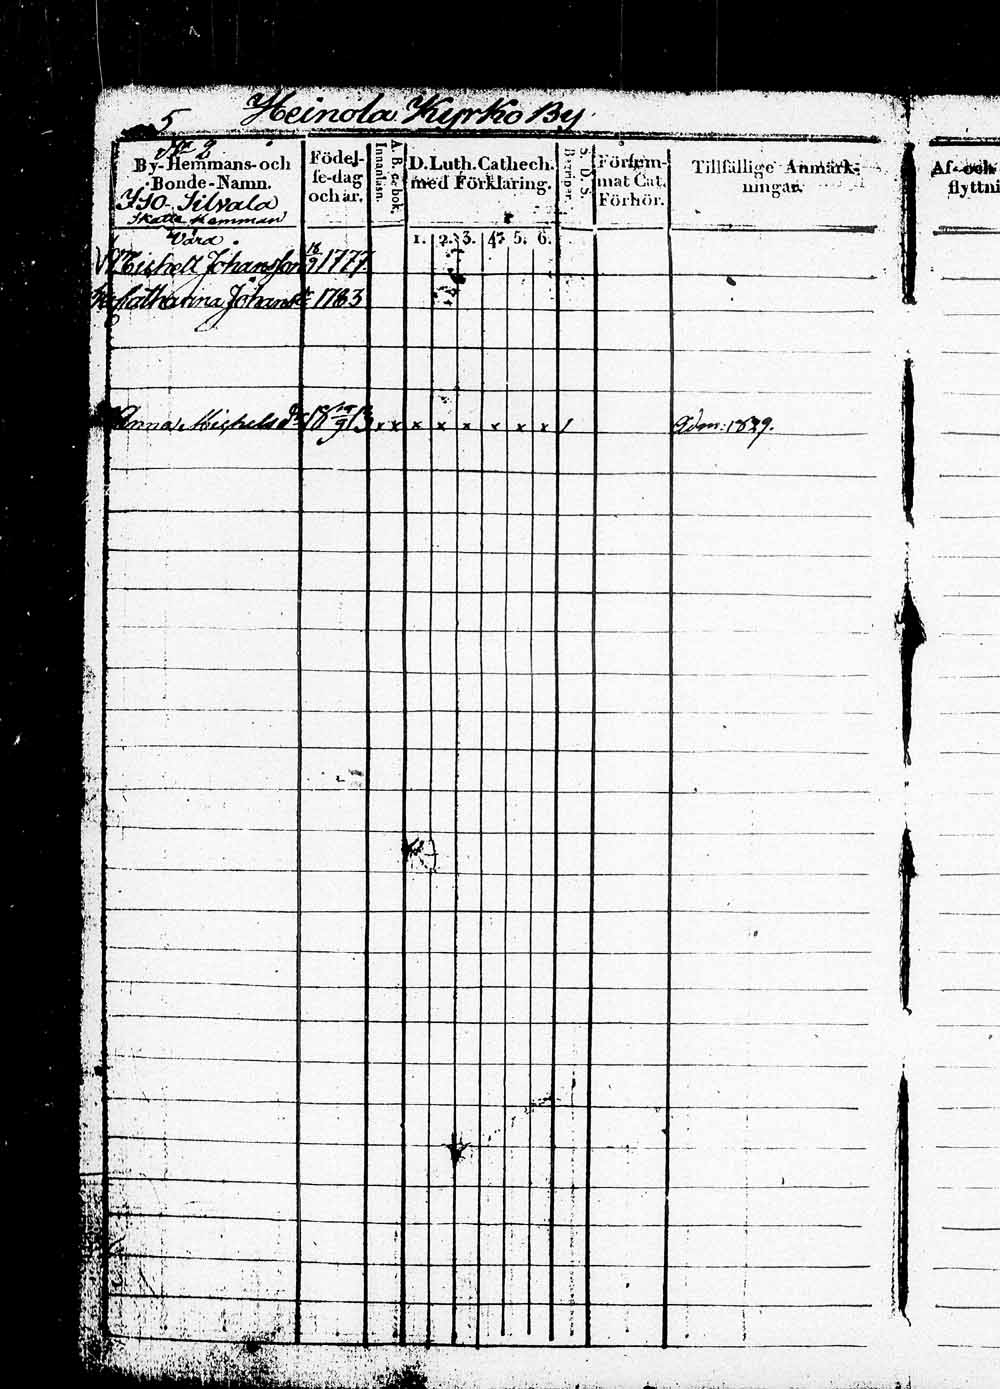 5 Heinola Kyrko By
No 2
By-Hemmans-och Bonde-Namn.
ISO Silvala
Skatte Hemman
Födel-se-dag och år.
A. B. c. bok.
Innanläsn.
D. Luth. Cathech. med Förklaring.
1. 2. 3. 4. 5. 6.
S. D. S.
Begripar.
Försum-mat Cat. Förhör.
Tillfällige Anmärk-ningar.
Af- och
flyttni
Michell Johansson 18/9 1777.
Catharina Johansdr 1783
Anna Michelsdr 18 19/9 13 x x x x x x x x /
Adm: 1829.